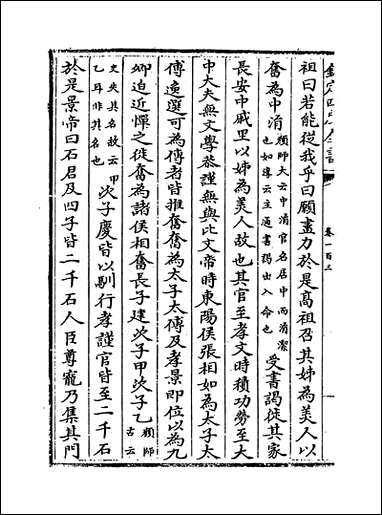 欽定四庫全書
卷一百三
祖曰若能從我乎曰願盡力於是髙祖召其姊為美人以
奮為中涓顔師古云中涓官名居中而涓潔也如淳云主通書謁出入命也受書謁徙其家
長安中戚里以姊為美人故也其官至孝文時積功勞至大
中大夫無文學恭謹無與比文帝時東陽侯張相如為太子太
傅免選可為傅者皆推奮奮為太子太傅及孝景即位以為九
卿迫近憚之徙奮為諸侯相奮長子建次子甲次子乙顔師古云
史失其名故云甲乙耳非其名也次子慶皆以馴行孝謹官皆至二千石
於是景帝曰石君及四子皆二千石人臣尊寵乃集其門